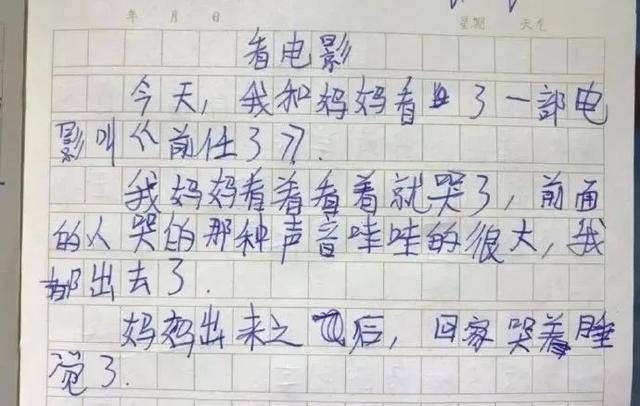 年 月 日 星期 天气
看电影
今天,我和妈妈看了一部电
影叫《前任3》.
我妈妈看着看着就哭了,前面
的人哭的那种声音哇哇的很大,我
都出去了.
妈妈出来之后,回家哭着睡
觉了.